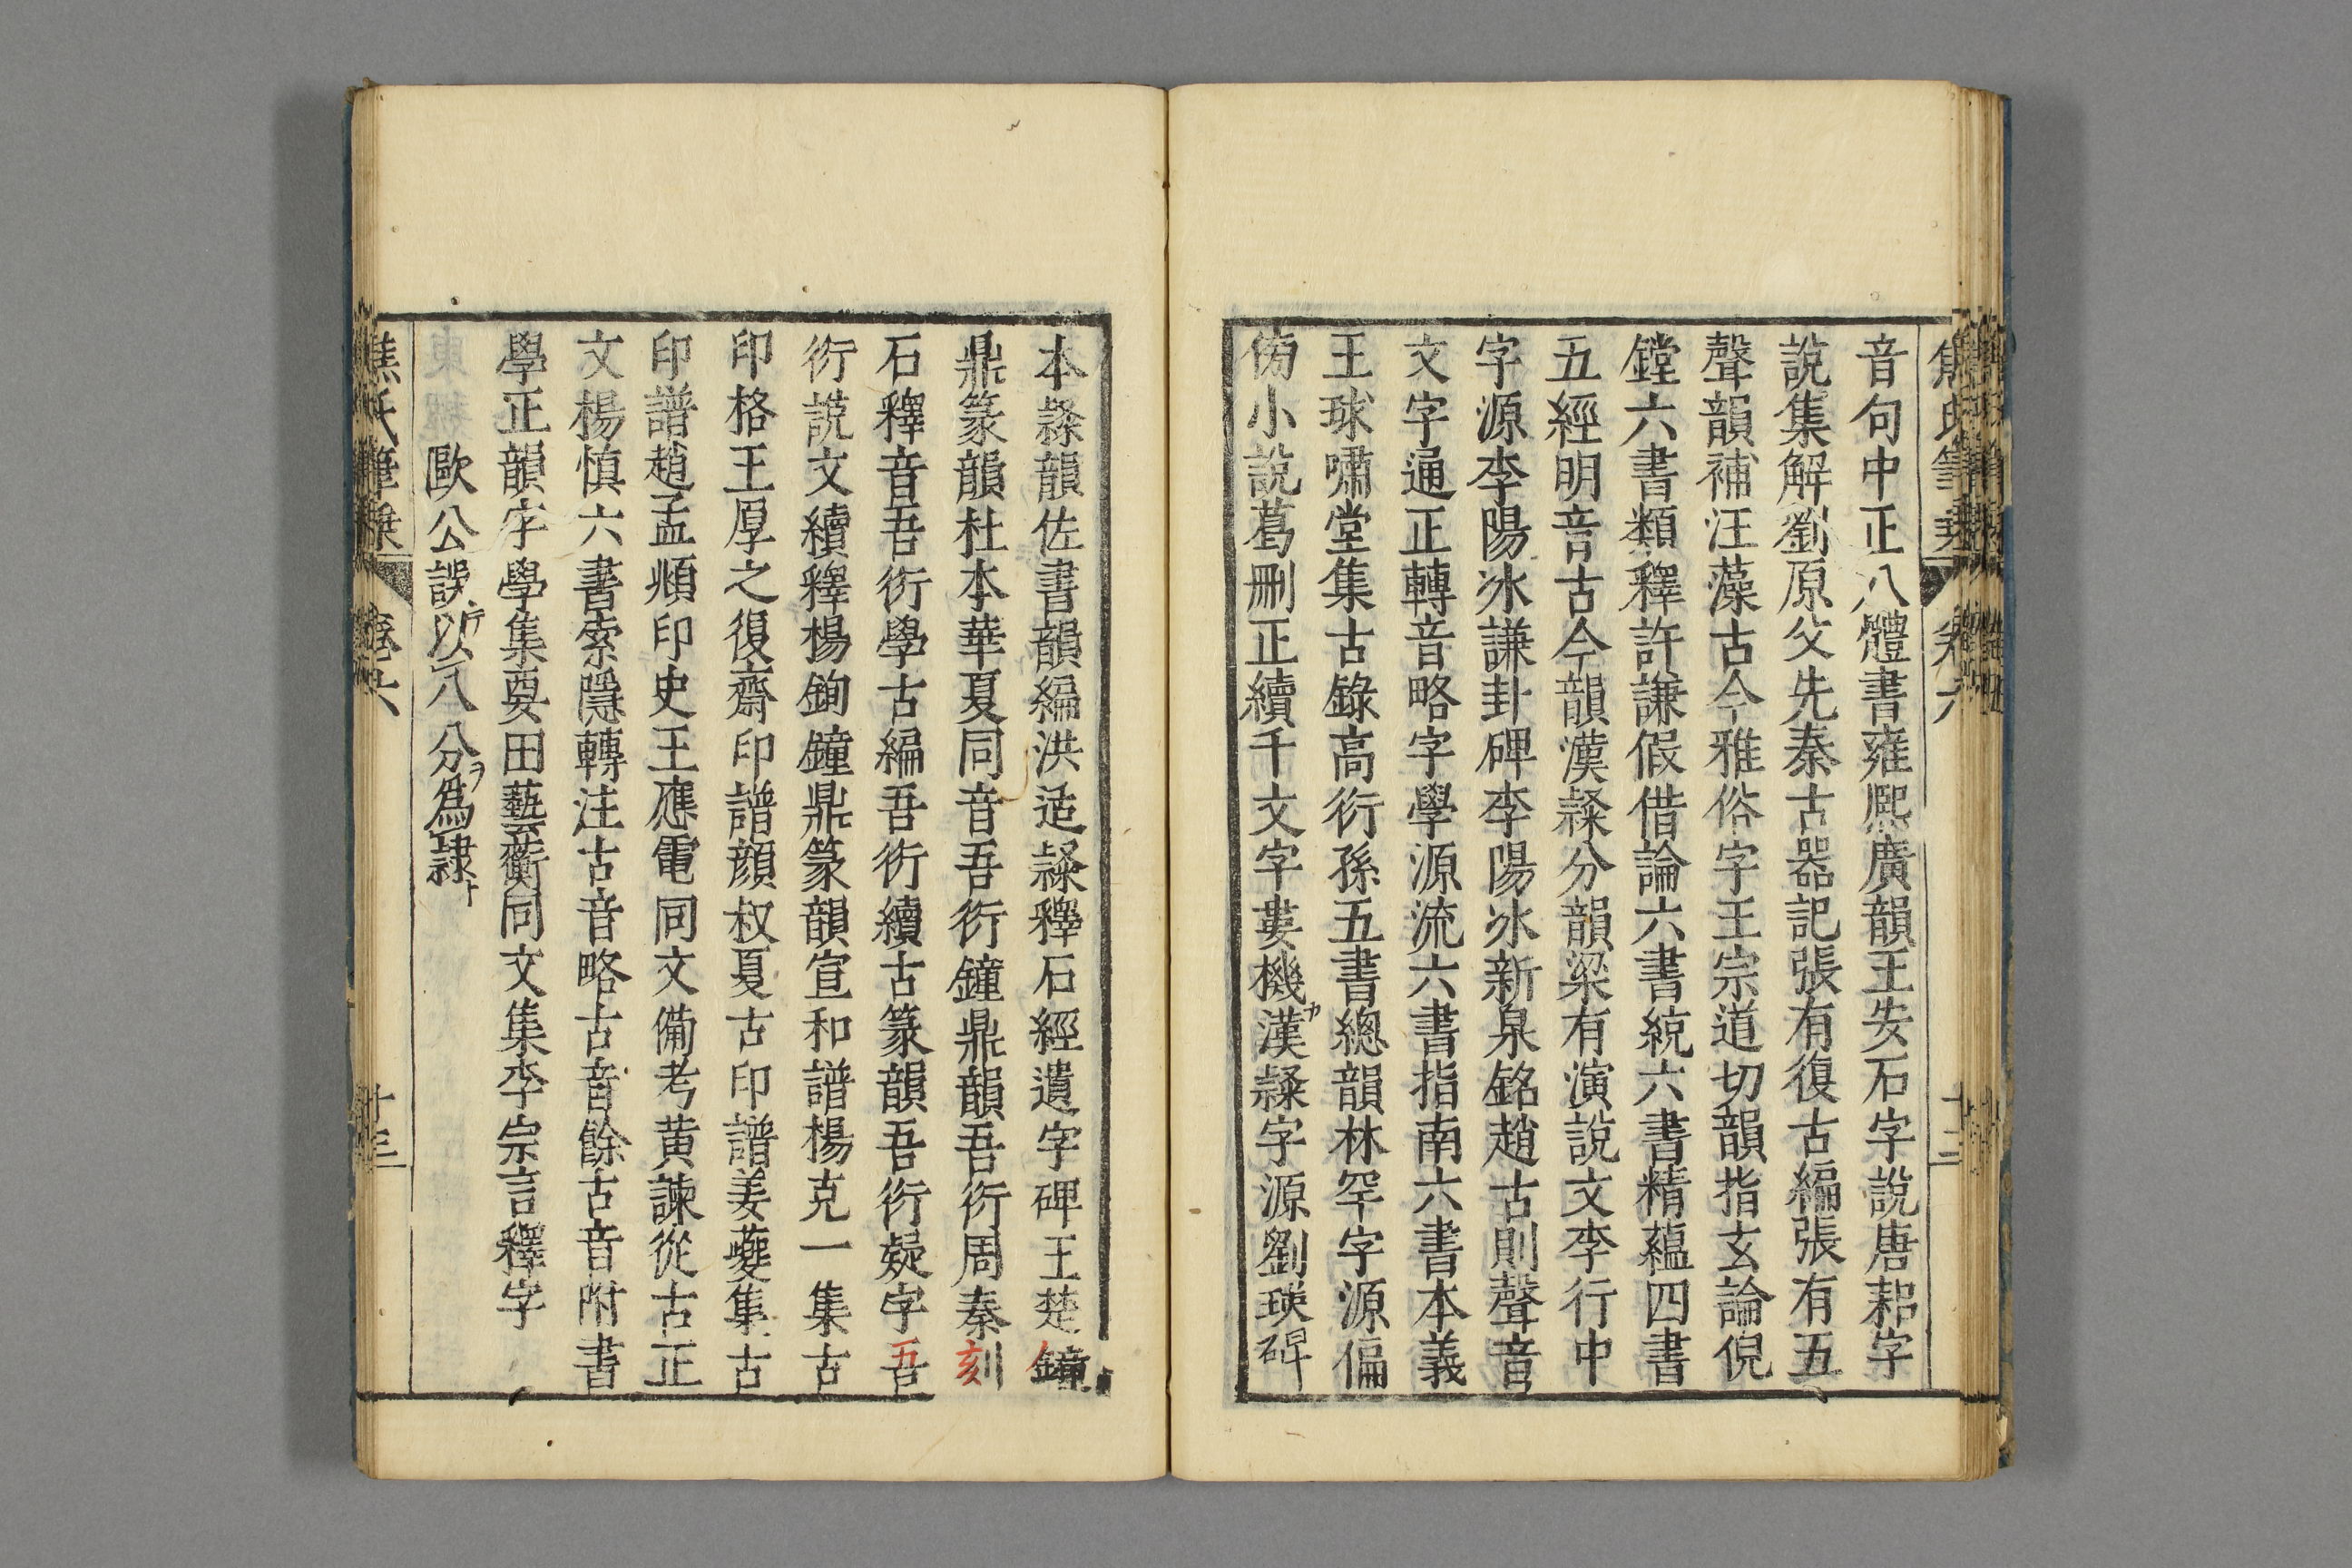 音句中正八體書雍熈廣韻王安石字說唐耜字
說集解劉原父先秦古器記張有復古編張有五
聲韻補汪藻古今雅俗字王宗道切韻指玄論倪
鏜六書類釋許謙假借論六書統六書精藴四書
五經明音古今韻漢𨽻分韻梁有演說文李行中
字源李陽冰謙卦碑李陽冰新泉銘趙古則聲音
文字通正轉音略字學源流六書指南六書本義
王球嘯堂集古錄高衍孫五書總韻林罕字源偏
傍小說葛刪正續千文字婁機漢𨽻字源劉球碑
本𨽻韻佐書韻編洪适𨽻釋石經遺字碑王楚鐘
鼎篆韻杜本華夏同音吾衍鐘鼎韻吾衍周秦刻
石釋音吾衍學古編吾衍續古篆韻吾衍疑字吾
衍說文續釋楊鉤鐘鼎篆韻宣和譜楊克一集古
印格王厚之復齋印譜顏叔夏古印譜姜夔集古
印譜趙孟頫印史王應電同文備考黃諫從古正
文楊慎六書索隱轉注古音略古音餘古音附書
學正韻字學集要田藝蘅同文集李宗言釋字
歐公誤以八分爲隸
焦氏筆乗
卷六
十三